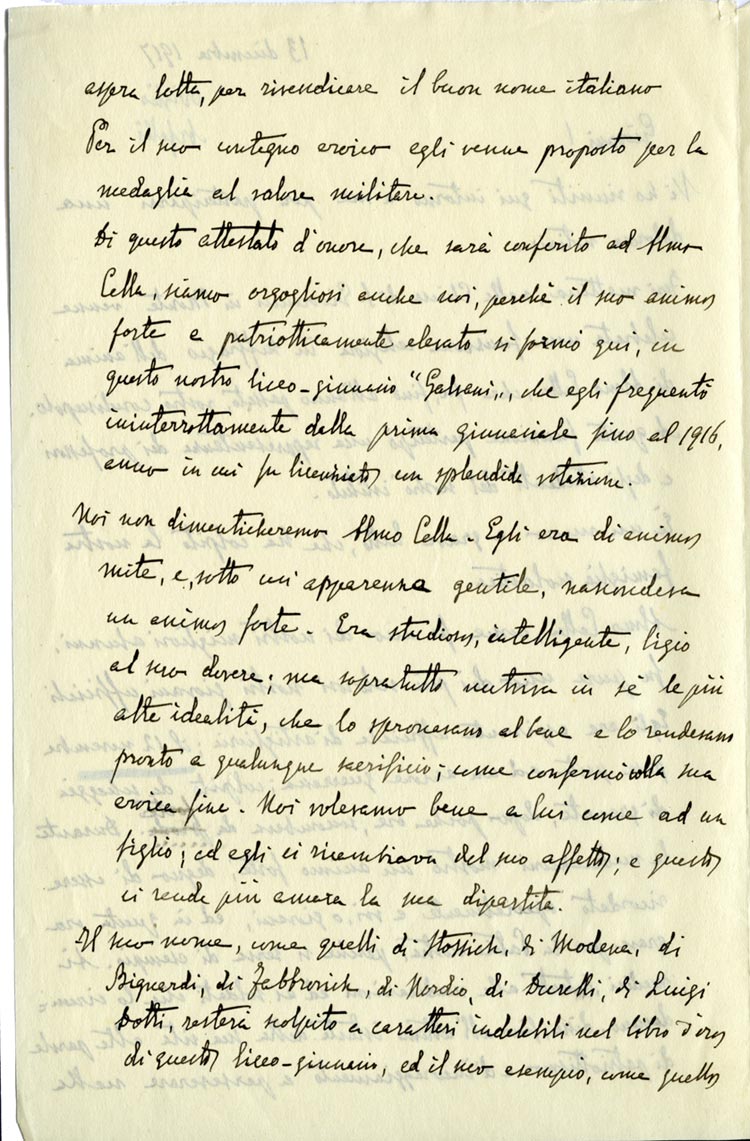 aspra lotta, per rivendicare il buon nome italiano
Per il suo contegno eroico egli venne proposto per la
medaglia al valore militare.
Di questo attestato d'onore, che sarà conferito ad Almo
Cella, siamo orgogliosi anche noi, perchè il suo animo
forte e patriotticamente elevato si formò qui, in
questo nostro liceo-ginnasio "Galvani", che egli frequentò
ininterrottamente dalla prima ginnasiale fino al 1916,
anno in cui fu licenziato con splendida votazione.
Noi non dimenticheremo Almo Cella. Egli era di animo
mite, e, sotto un'apparenza gentile, nascondeva
un animo forte. Era studioso, intelligente, ligio
al suo dovere; ma sopratutto nutriva in sè le più
alte idealità, che lo spronavano al bene e lo rendevano
pronto a qualunque sacrificio; come confermò colla sua
eroica fine. Noi volevamo bene a lui come ad un
figlio; ed egli ci ricambiava del suo affetto; e questo
ci rende più amara la sua dipartita.
Il suo nome, come quelli di Stossich, di Modena, di
Bignardi, di Fabbrovich, di Nordio, di Duselli, di Luigi
Dotti, resterà scolpito a caratteri indelebili nel libro d'oro
di questo liceo-ginnasio, ed il suo esempio, come quello